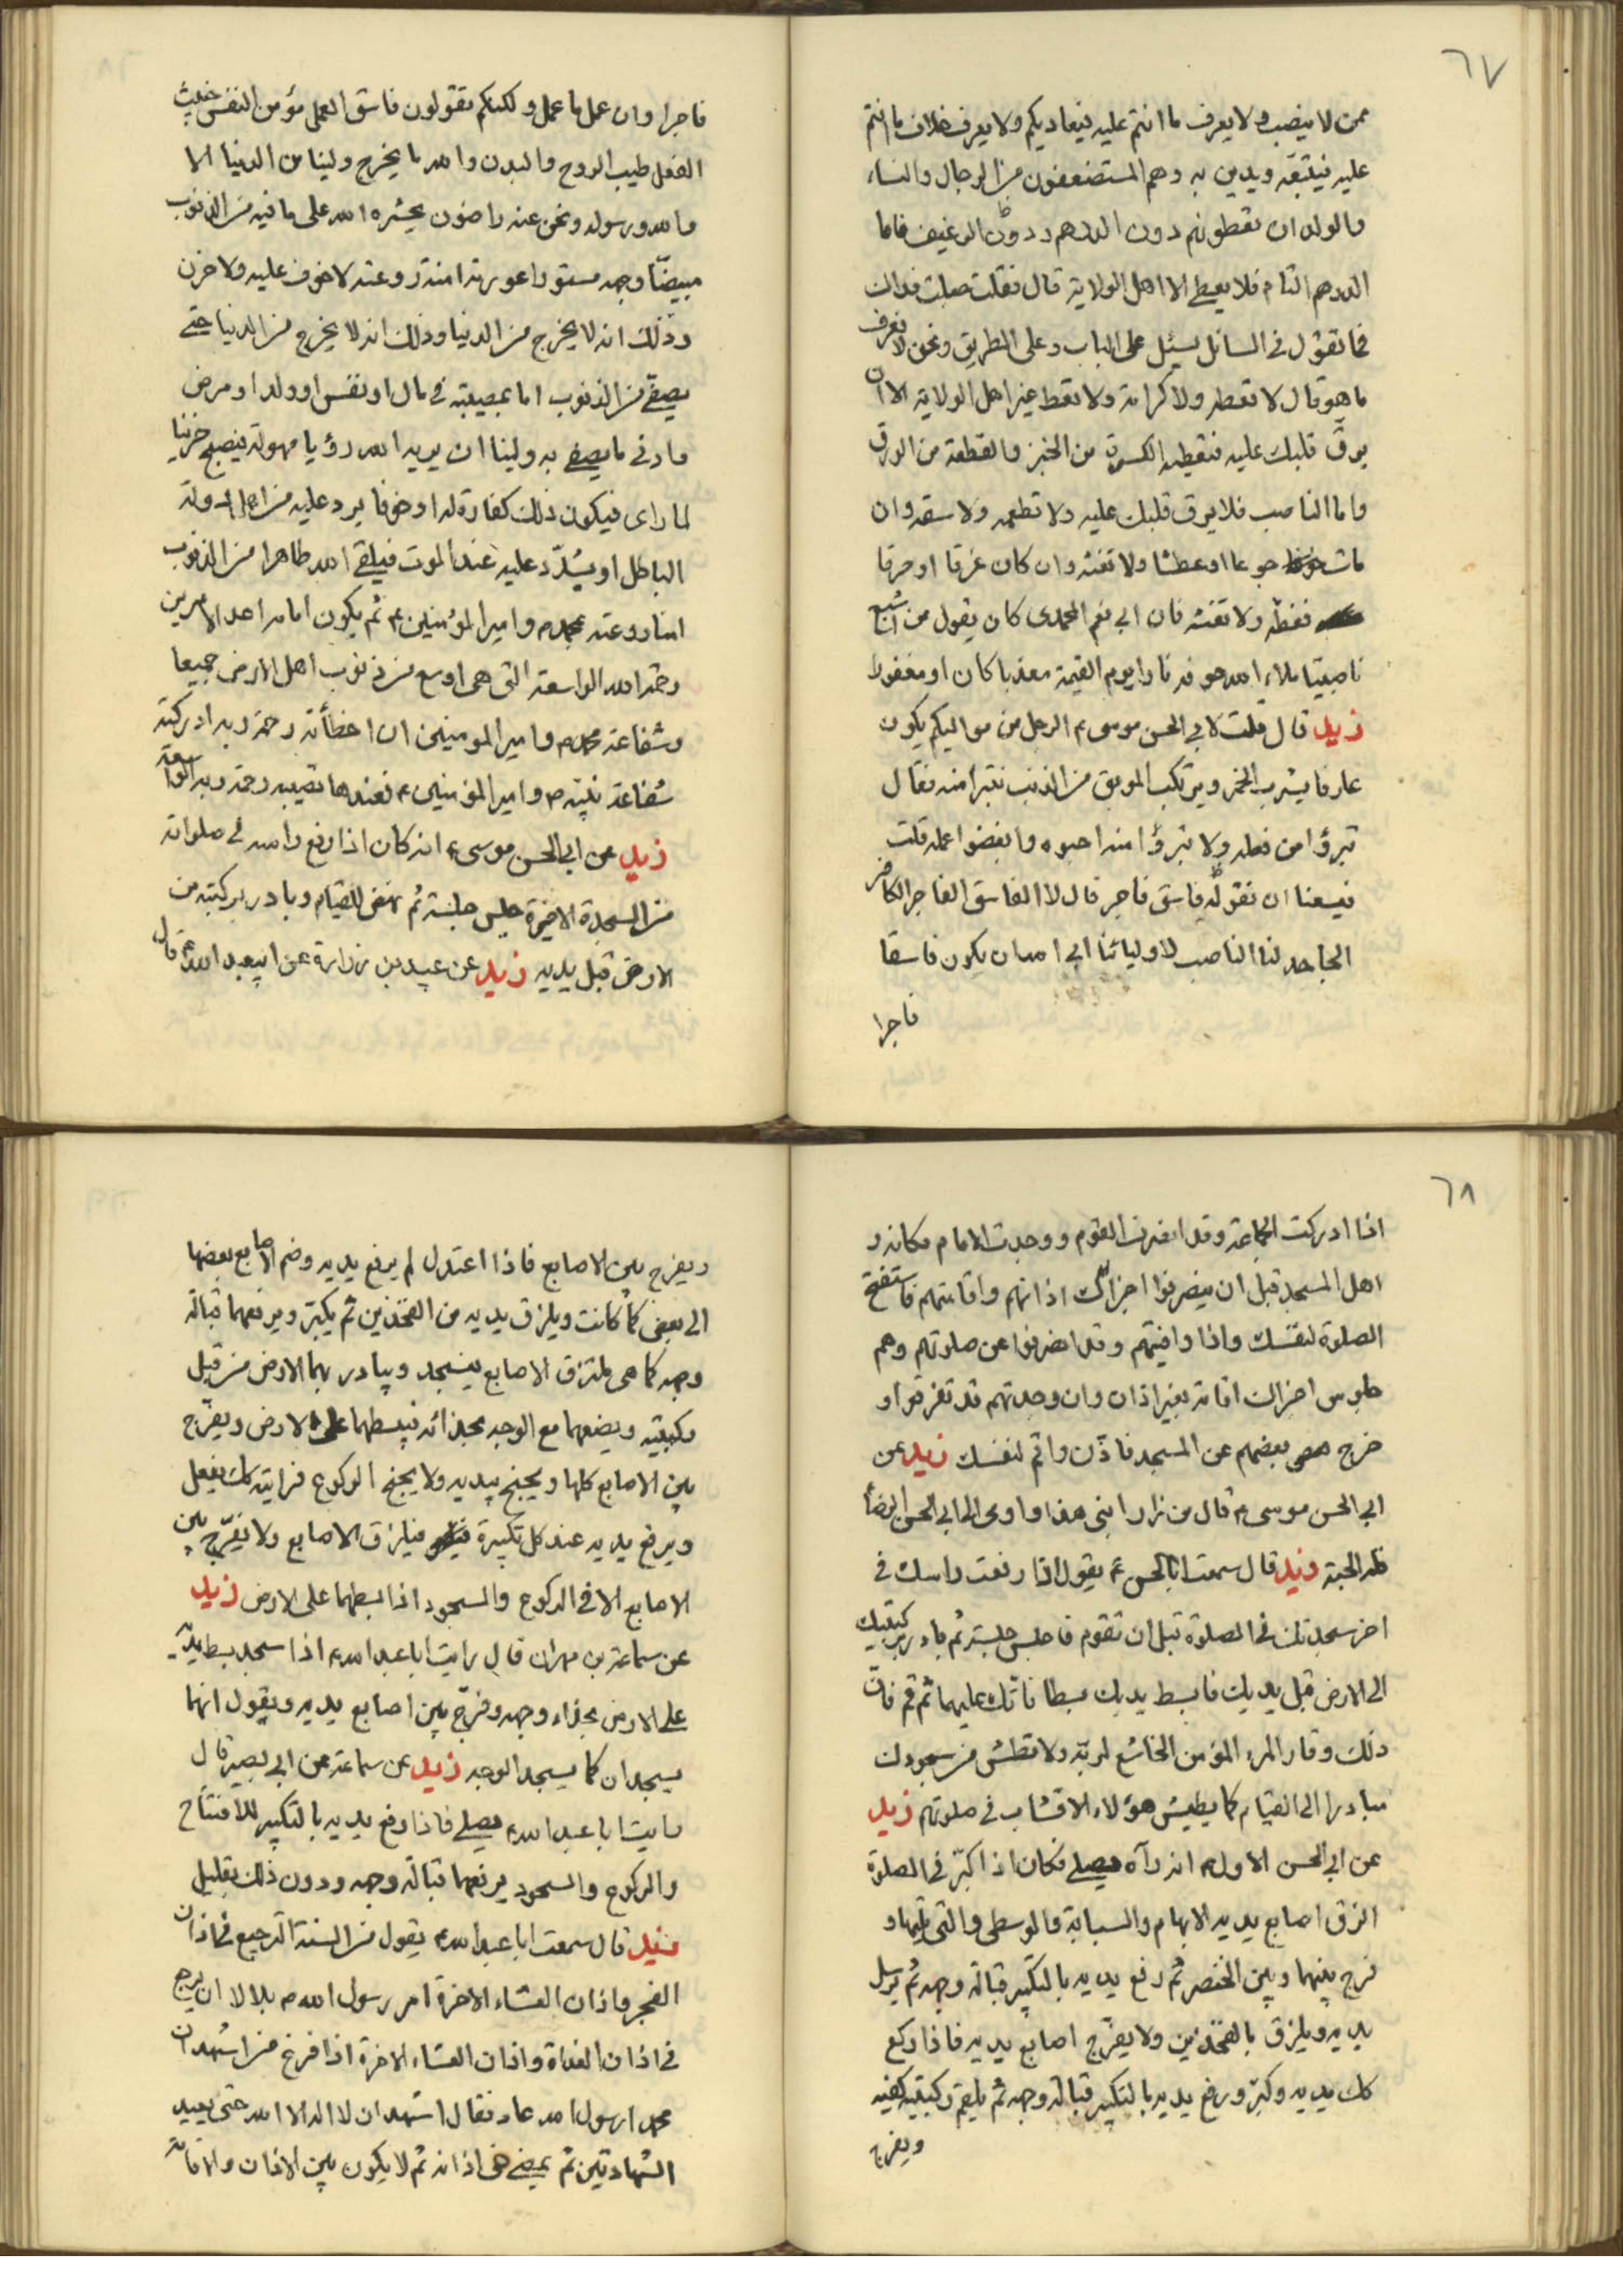 ٦٧
ممن لا ينصب ولا يعرف ما انتم عليه فيعاديكم ولا يعرف خلاف ما انتم
عليه فيتبعه ويدين به وهم المستضعفون من الرجال والنساء
والولدان تعطونهم دون الدرهم ودون الرغيف فاما
الدرهم التام فلا يعطى الا اهل الولاية قال فقلت جعلت فداك
فما تقول في السائل يسئل على الباب وعلى الطريق ونحن لا نعرف
ما هو قال لا تعطه ولا كرامة ولا تعط غير اهل الولاية الا ان
يرق قلبك عليه فتعطيه الكسرة من الخبز والقطعة من الورق
واما الناصب فلا يرق قلبك عليه ولا تطعمه ولا تسقه وان
مات جوعا او عطشا ولا تغثه وان كان غرقا او حرقا
فغطه ولا تغثه فان ابي نعم المحمدي كان يقول من اشبع
ناصبيا ملاء الله جوفه نارا يوم القيمة معذبا كان او مغفورا
زيد قال قلت لابي الحسن موسى ع الرجل من مواليكم يكون
عارفا يشرب الخمر ويرتكب الموبق من الذنب نتبرا منه فقال
تبرؤا من فعله ولا تبرؤا منه احبوه وابغضوا عمله قلت
فيسعنا ان نقول له فاسق فاجر قال لا الفاسق الفاجر الكافر
الجاحد لنا الناصب لاوليائنا ابى الله ان يكون فاسقا
فاجرا
فاجرا وان عمل ما عمل ولكنكم تقولون فاسق العمل مؤمن النفس خبيث
الفعل طيب الروح والبدن والله ما يخرج ولينا من الدنيا الا
والله ورسوله ونحن عنه راضون يحشره الله على ما فيه من الذنوب
مبيضا وجهه مستورا عورته امنة روعته لا خوف عليه ولا حزن
وذلك انه لا يخرج من الدنيا وذلك انه لا يخرج من الدنيا حتى
يصفى من الذنوب اما بمصيبة في مال او نفس او ولد او مرض
وادنى ما يصفى به ولينا ان يريه الله رؤيا مهولة فيصبح حزينا
لما راى فيكون ذلك كفارة له او خوفا يرد عليه من اهل الدولة
الباطل او يشدد عليه عند الموت فيلقى الله طاهرا من الذنوب
امنا روعته بمحمد ص وامير المؤمنين ع ثم يكون امامه احد الامرين
رحمة الله الواسعة التي هي اوسع من ذنوب اهل الارض جميعا
وشفاعة محمد ص وامير المومنين ان اخطأته رحمة ربه ادركته
شفاعة نبيه ص وامير المؤمنين ع فعندها تصيبه رحمة ربه الواسعة
زيد عن ابي الحسن موسى ع انه كان اذا رفع راسه في صلواته
من السجدة الاخيرة جلس جلسة ثم نهض للقيام وبادر بركبتيه من
الارض قبل يديه زيد عن عبيد بن زرارة عن ابيعبد الله ع قال
٦٨
اذا ادركت الجماعة وقد انصرف القوم ووجدت الامام مكانه و
اهل المسجد قبل ان ينصرفوا اجزأك اذانهم واقامتهم فاستفتح
الصلوة لنفسك واذا وافيتهم وقد انصرفوا عن صلوتهم وهم
جلوس اجزأك اقامة بغير اذان وان وجدتهم قد تفرقوا و
خرج بعضهم عن المسجد فاذن واقم لنفسك زيد عن
ابي الحسن موسى ع قال من زار ابني هذا واومى الى ابي الحسن الرضا
فله الجنة زيد قال سمعت ابا الحسن ع يقول اذا رفعت راسك في
اخر سجدتك في الصلوة قبل ان تقوم فاجلس جلسة ثم بادر بركبتيك
الى الارض قبل يديك فابسط يديك بسطا فاتك عليهما ثم قم فان
ذلك وقار المرء المؤمن الخاشع لربه ولا تطش من سجودك
مبادرا الى القيام كما يطيش هؤلاء الاقشاب في صلوتهم زيد
عن ابي الحسن الاول ع انه رآه يصلي فكان اذا كبر في الصلوة
الزق اصابع يديه الابهام والسبابة والوسطى والتي تليها و
فرج بينهما وبين الخنصر ثم رفع يديه بالتكبير قبالة وجهه ثم يرسل
يديه ويلزق بالفخذين ولا يفرج اصابع يديه فاذا ركع
كك يديه وكبر ورفع يديه بالتكبير قبالة وجهه ثم يلقم ركبتيه كفيه
ويفرج
ويفرج بين الاصابع فاذا اعتدل لم يرفع يديه وضم الاصابع بعضها
الى بعض كما كانت ويلزق يديه من الفخذين ثم يكبر ويرفعهما قبالة
وجهه كما هي ملتزق الاصابع فيسجد ويبادر بهما الارض من قبل
ركبتيه ويضعهما مع الوجه بحذائه فيبسطهما على الارض ويفرج
بين الاصابع كلها ويجنح بيديه ولا يجنح الركوع فرايته كك يفعل
ويرفع يديه عند كل تكبيرة فيلزق الاصابع ولا يفرج بين
الاصابع الا في الركوع والسجود اذا بسطهما على الارض زيد
عن سماعة بن مهران قال رايت ابا عبد الله ع اذا سجد بسط يديه
على الارض بحذاء وجهه وفرج بين اصابع يديه ويقول انهما
يسجدان كما يسجد الوجه زيد عن سماعة عن ابي بصير قال
رايت ابا عبد الله ع يصلي فاذا رفع يديه بالتكبير للافتتاح
والركوع والسجود يرفعهما قبالة وجهه ودون ذلك بقليل
زيد قال سمعت ابا عبد الله ع يقول من السنة الترجيع في اذان
الفجر واذان العشاء الاخرة امر رسول الله ص بلالا ان يرجع
في اذان الغداة واذان العشاء الاخرة اذا فرغ من اشهد ان
محمدا رسول الله عاد فقال اشهد ان لا اله الا الله حتى يعيد
الشهادتين ثم يمضي في اذانه ثم لا يكون بين الاذان والاقامة